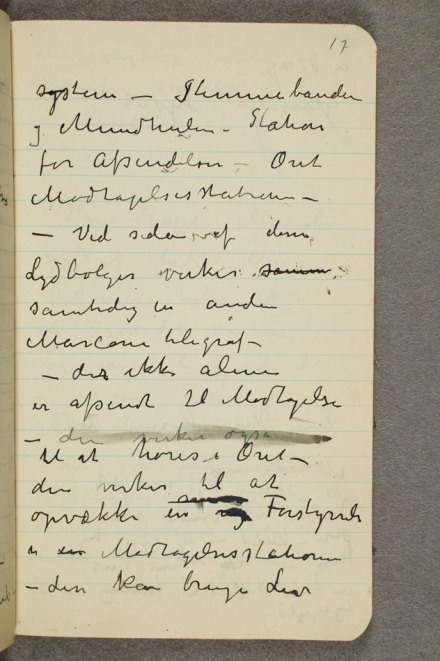 17
system — Stemmebanden
og Mundhulen - Station
for Afsendelsen — Øret
Modtagelsesstationen —
— Ved siden af denne
Lydbølger virker
samtidig en anden
Marconi telegraf —
— der ikke alene
er afsendt til Modtagelse
— den virker også
til at høres i Øret —
den virker til at
opvække en Forstyrrelse
i Modtagelsesstationen
— den kan bringe den